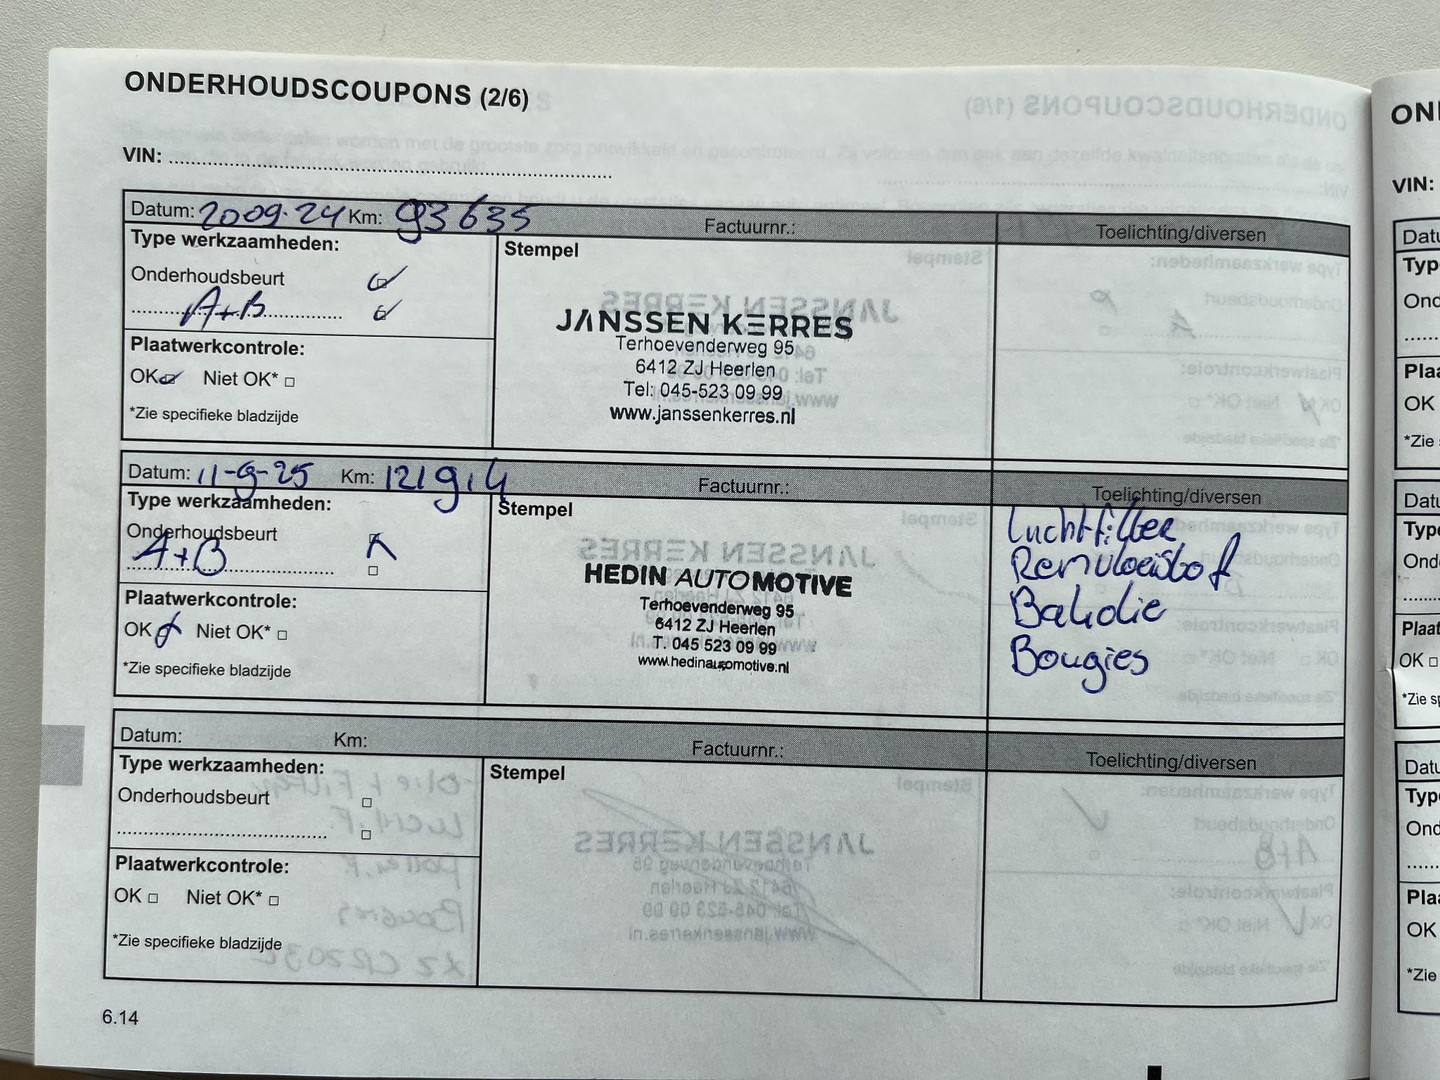 ONDERHOUDSCOUPONS (2/6)
VIN:
Datum: 2009-24 Km: 93635 Factuurnr.: Toelichting/diversen
Type werkzaamheden:
Onderhoudsbeurt
A+B
Plaatwerkcontrole:
OK Niet OK*
*Zie specifieke bladzijde
Stempel
JANSSEN KERRES
Terhoevenderweg 95
6412 ZJ Heerlen
Tel: 045-523 09 99
www.janssenkerres.nl
Datum: 11-9-25 Km: 121914 Factuurnr.: Toelichting/diversen
Type werkzaamheden:
Onderhoudsbeurt
A+B
Plaatwerkcontrole:
OK Niet OK*
*Zie specifieke bladzijde
Stempel
HEDIN AUTOMOTIVE
Terhoevenderweg 95
6412 ZJ Heerlen
T. 045 523 09 99
www.hedinautomotive.nl
Luchtfilter
Remvloeistof
Bakolie
Bougies
Datum: Km: Factuurnr.: Toelichting/diversen
Type werkzaamheden:
Onderhoudsbeurt
Plaatwerkcontrole:
OK Niet OK*
*Zie specifieke bladzijde
Stempel
6.14
VIN: